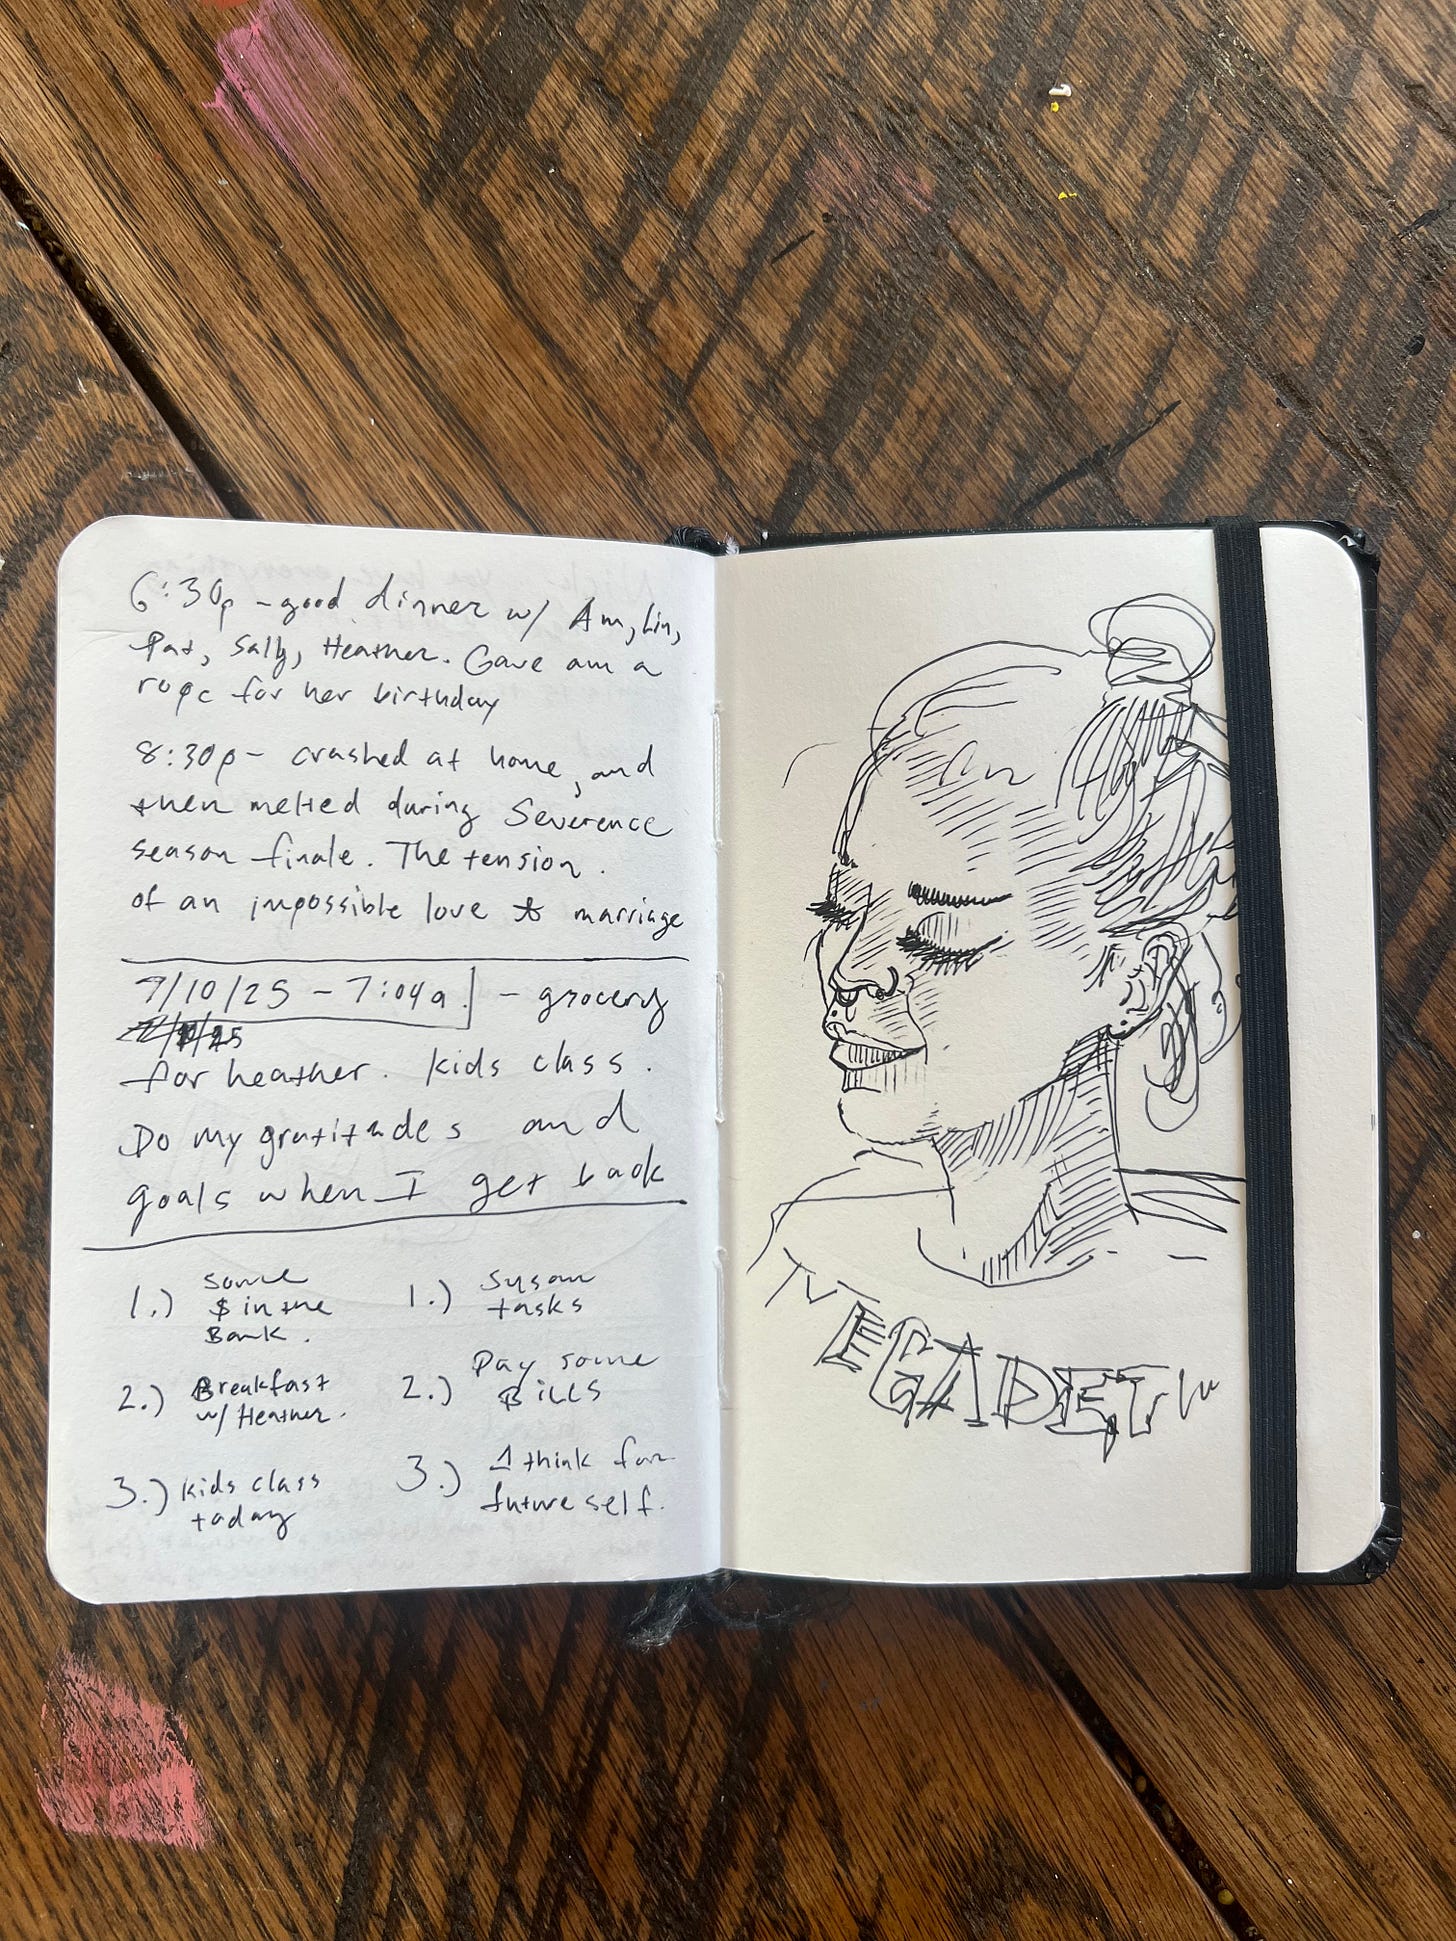 6:30p - good dinner w/ Am, Lin,
Pat, Sally, Heather. Gave am a
rope for her birthday
8:30p - crashed at home, and
then melted during Severence
season finale. The tension.
of an impossible love & marriage
7/10/25 - 7:04a. - grocery
for heather. kids class.
Do my gratitudes and
goals when I get back
1.) some
$ in the
Bank.
2.) Breakfast
w/ Heather.
3.) kids class
today
1.) Susan
tasks
2.) Pay some
Bills
3.) 1 think for
future self.
MEGADETH